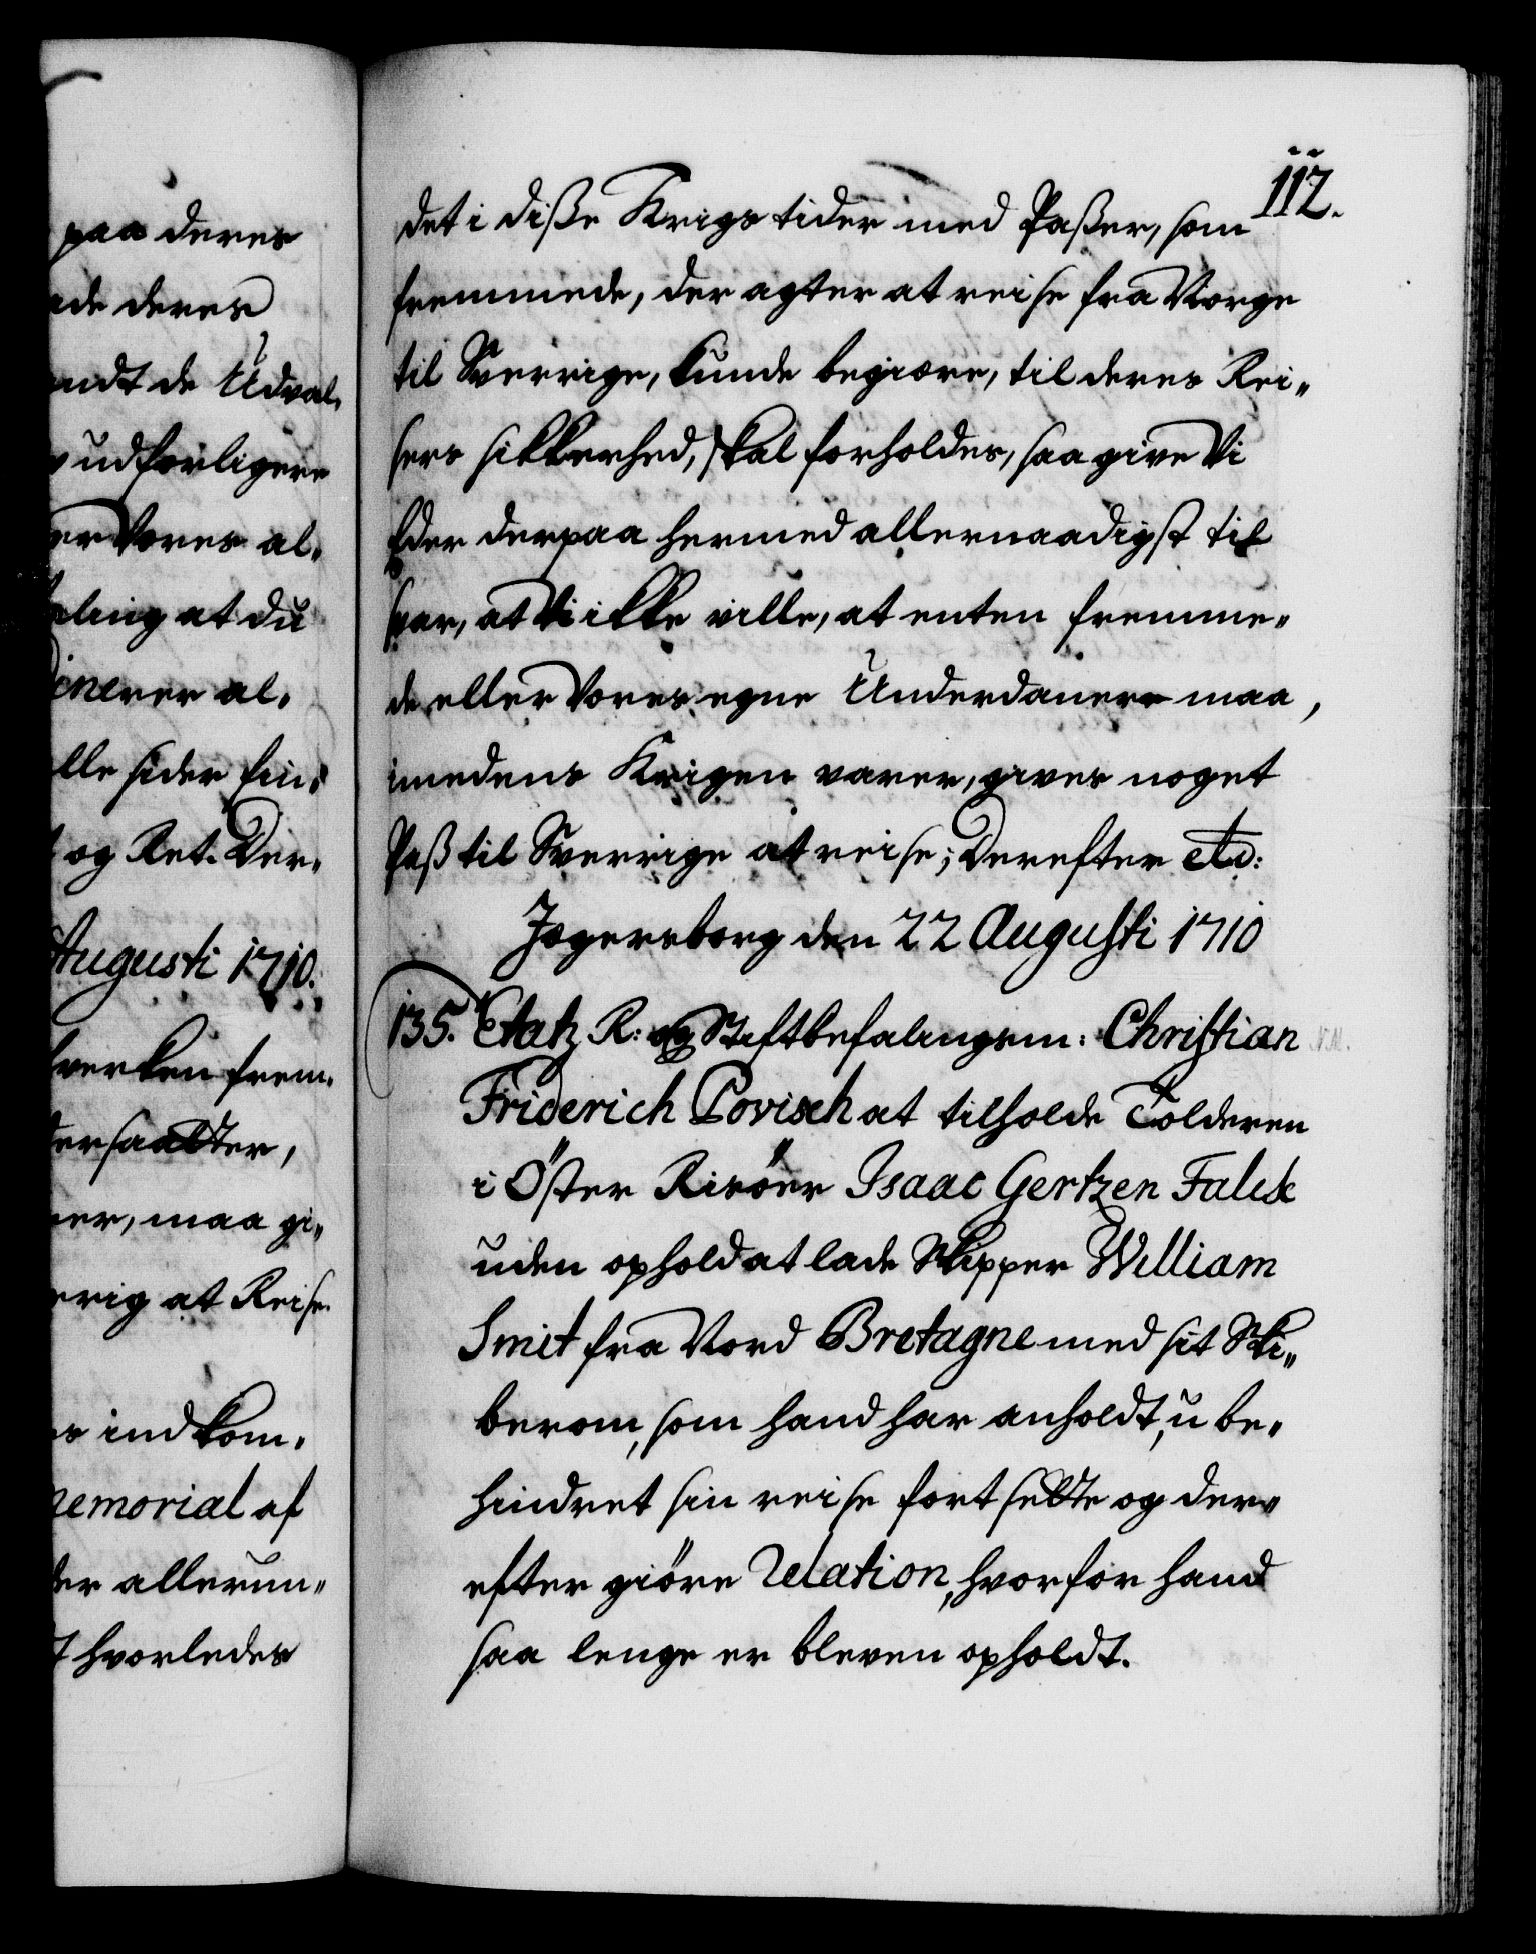 paa deres
ade deres
andt de Udval-
udforligere
er Vores al-
aling at du
inerer al-
lle sider fin-
og Ret. Der-
Augusti 1710.
hverken frem-
dersaatter,
er, maa gi-
errig at Reise.
s indkom-
memorial af
der allerun-
t hvorledes
112.
det i diße Krigs tider med Paßer, som
fremmede, der agter at reise fra Norge
til Sverrige, kunde begiære, til deres Rei-
sers sikkerhed, skal forholdes, saa give Vi
Eder derpaa hermed allernaadigst til
svar, at Vi ikke ville, at enten fremme-
de eller Vores egne Underdanere maa,
imedens Krigen varer, gives noget
Paß til Sverrige at reise; Derefter etc:
Jægersborg den 22 Augusti 1710
135. Etatz R: og Stiftbefalingsm: Christian
Friderich Povisch at tilholde Tolderen
i Öster Riisöer Isaac Gertzen Falck
uden ophold at lade Skipper William
Smit fra Nord Bretagne med sit Ski-
berom, som hand har anholdt, u be-
hindret sin reise fortsette og der-
efter giöre Relation, hvorfor hand
saa lenge er bleven opholdt.